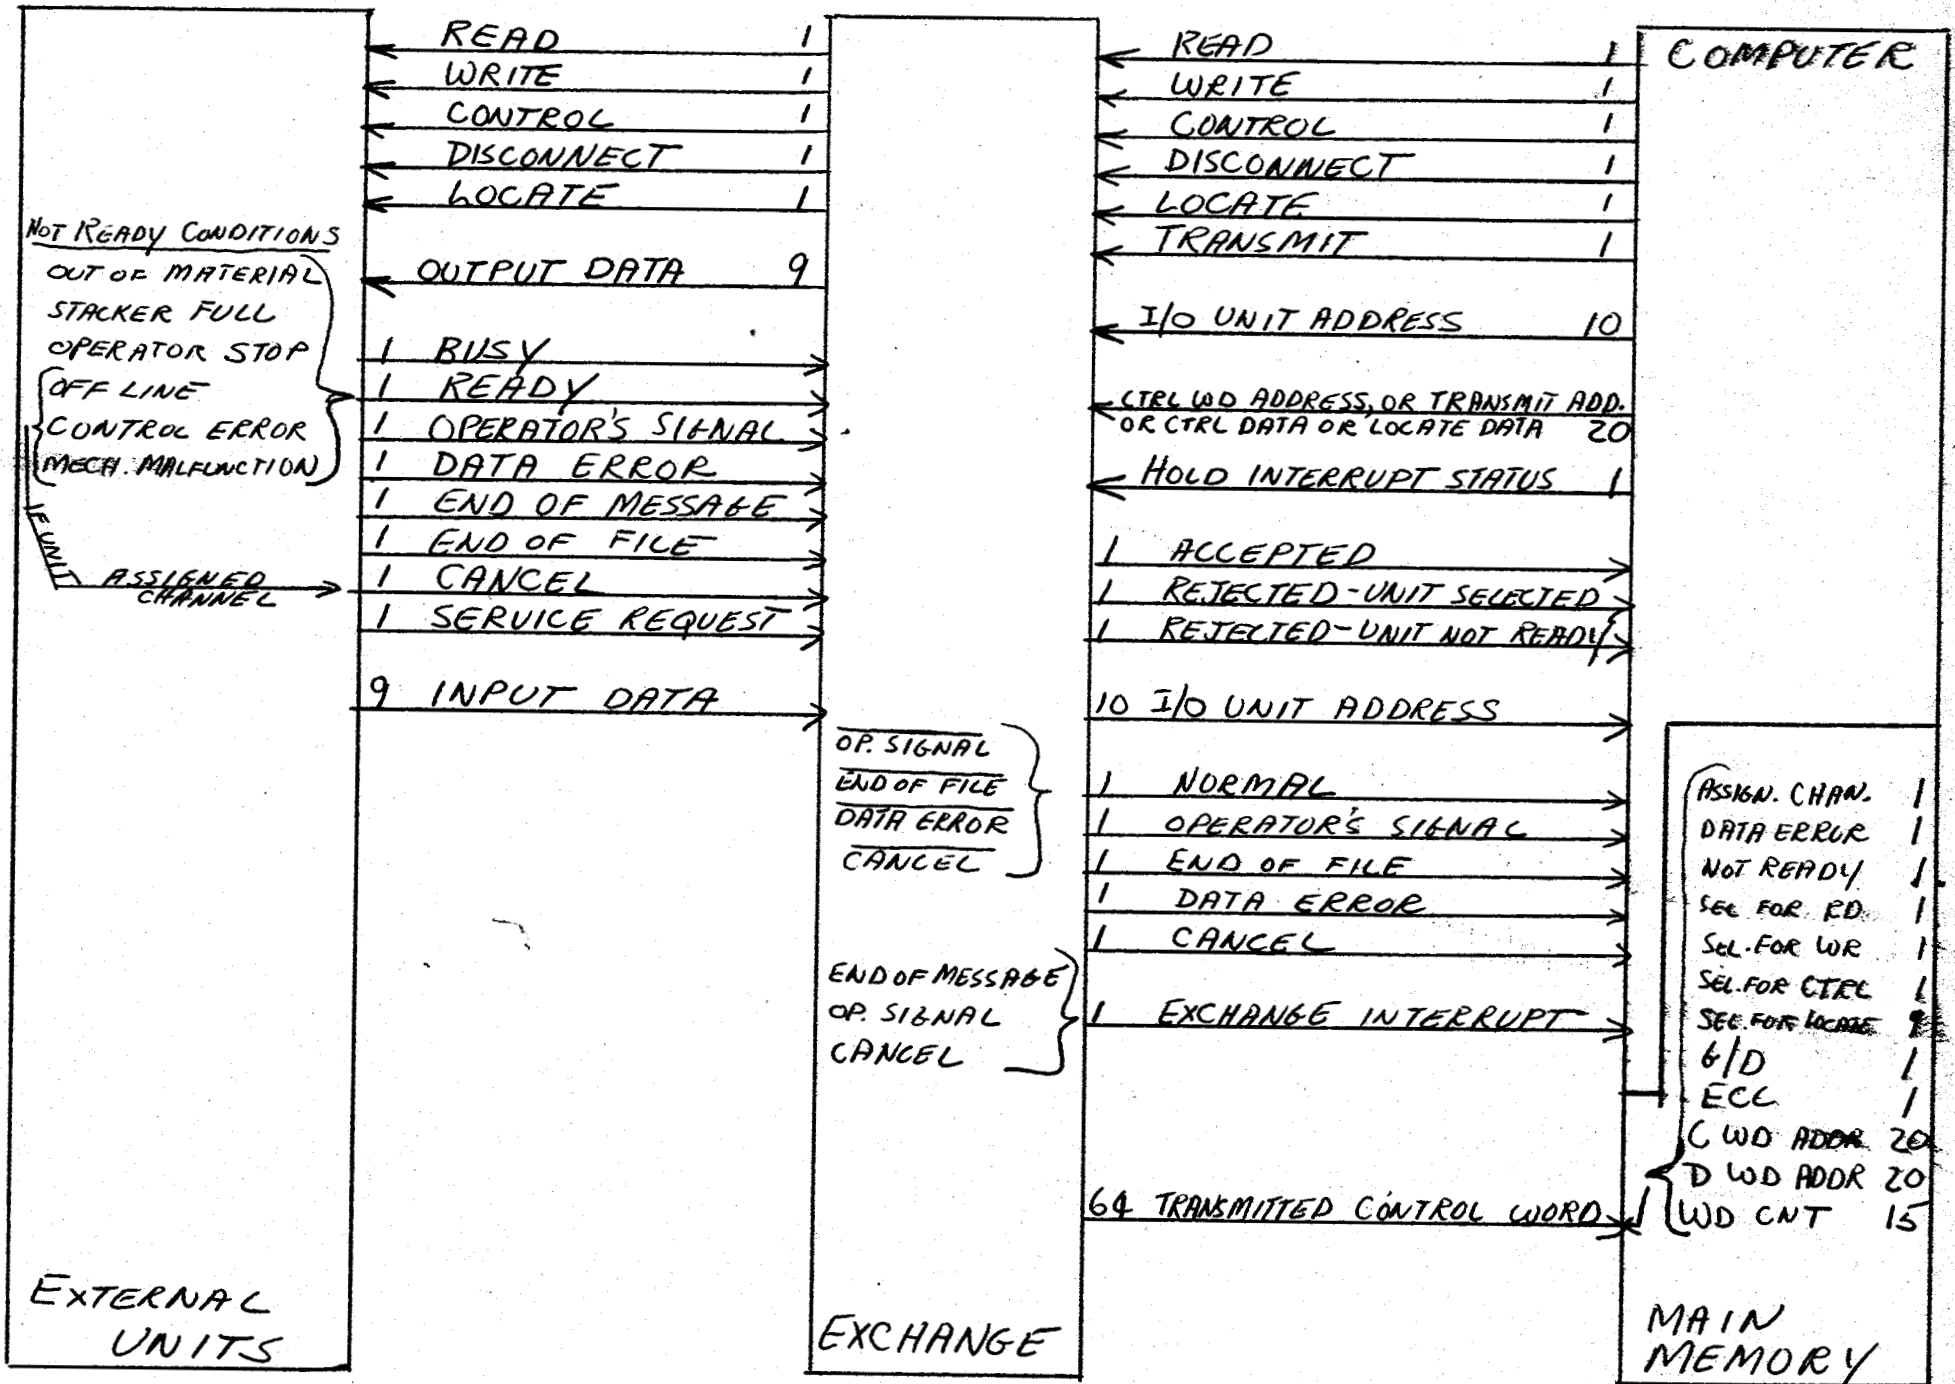 READ 1
WRITE 1
CONTROL 1
DISCONNECT 1
LOCATE 1
OUTPUT DATA 9
NOT READY CONDITIONS
OUT OF MATERIAL
STACKER FULL
OPERATOR STOP
OFF LINE
CONTROL ERROR
MECH. MALFUNCTION
IF UNIT
ASSIGNED
CHANNEL
1 BUSY
1 READY
1 OPERATOR'S SIGNAL
1 DATA ERROR
1 END OF MESSAGE
1 END OF FILE
1 CANCEL
1 SERVICE REQUEST
9 INPUT DATA
EXTERNAL
UNITS
OP. SIGNAL
END OF FILE
DATA ERROR
CANCEL
END OF MESSAGE
OP. SIGNAL
CANCEL
EXCHANGE
READ 1
WRITE 1
CONTROL 1
DISCONNECT 1
LOCATE 1
TRANSMIT 1
I/O UNIT ADDRESS 10
CTRL WD ADDRESS, OR TRANSMIT ADD.
OR CTRL DATA OR LOCATE DATA 20
HOLD INTERRUPT STATUS 1
1 ACCEPTED
1 REJECTED-UNIT SELECTED
1 REJECTED-UNIT NOT READY
10 I/O UNIT ADDRESS
1 NORMAL
1 OPERATOR'S SIGNAL
1 END OF FILE
1 DATA ERROR
1 CANCEL
1 EXCHANGE INTERRUPT
64 TRANSMITTED CONTROL WORD
COMPUTER
ASSIGN. CHAN. 1
DATA ERROR 1
NOT READY 1
SEL FOR RD 1
SEL. FOR WR 1
SEL. FOR CTRL 1
SEL. FOR LOCATE
G/D 1
ECC 1
C WD ADDR 20
D WD ADDR 20
WD CNT 15
MAIN
MEMORY